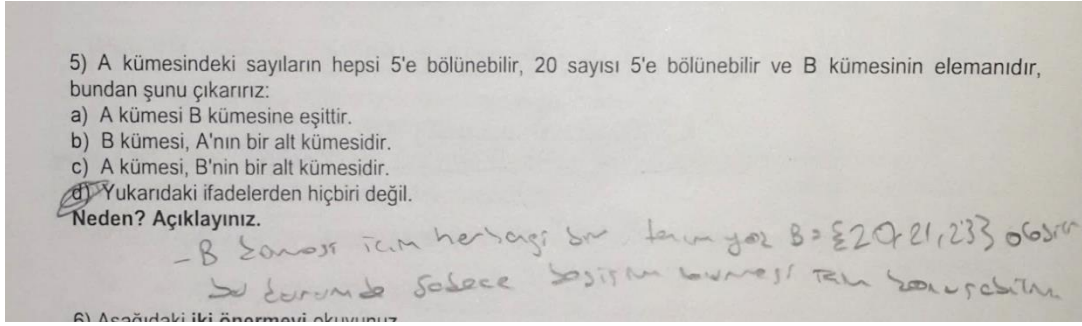 5) A kümesindeki sayıların hepsi 5'e bölünebilir, 20 sayısı 5'e bölünebilir ve B kümesinin elemanıdır,
bundan şunu çıkarırız:
a) A kümesi B kümesine eşittir.
b) B kümesi, A'nın bir alt kümesidir.
c) A kümesi, B'nin bir alt kümesidir.
d) Yukarıdaki ifadelerden hiçbiri değil.
Neden? Açıklayınız.
- B için herhangi bir tanım yok B=
bu durumda sadece
6) Aşağıdaki iki önermeyi okuyunuz